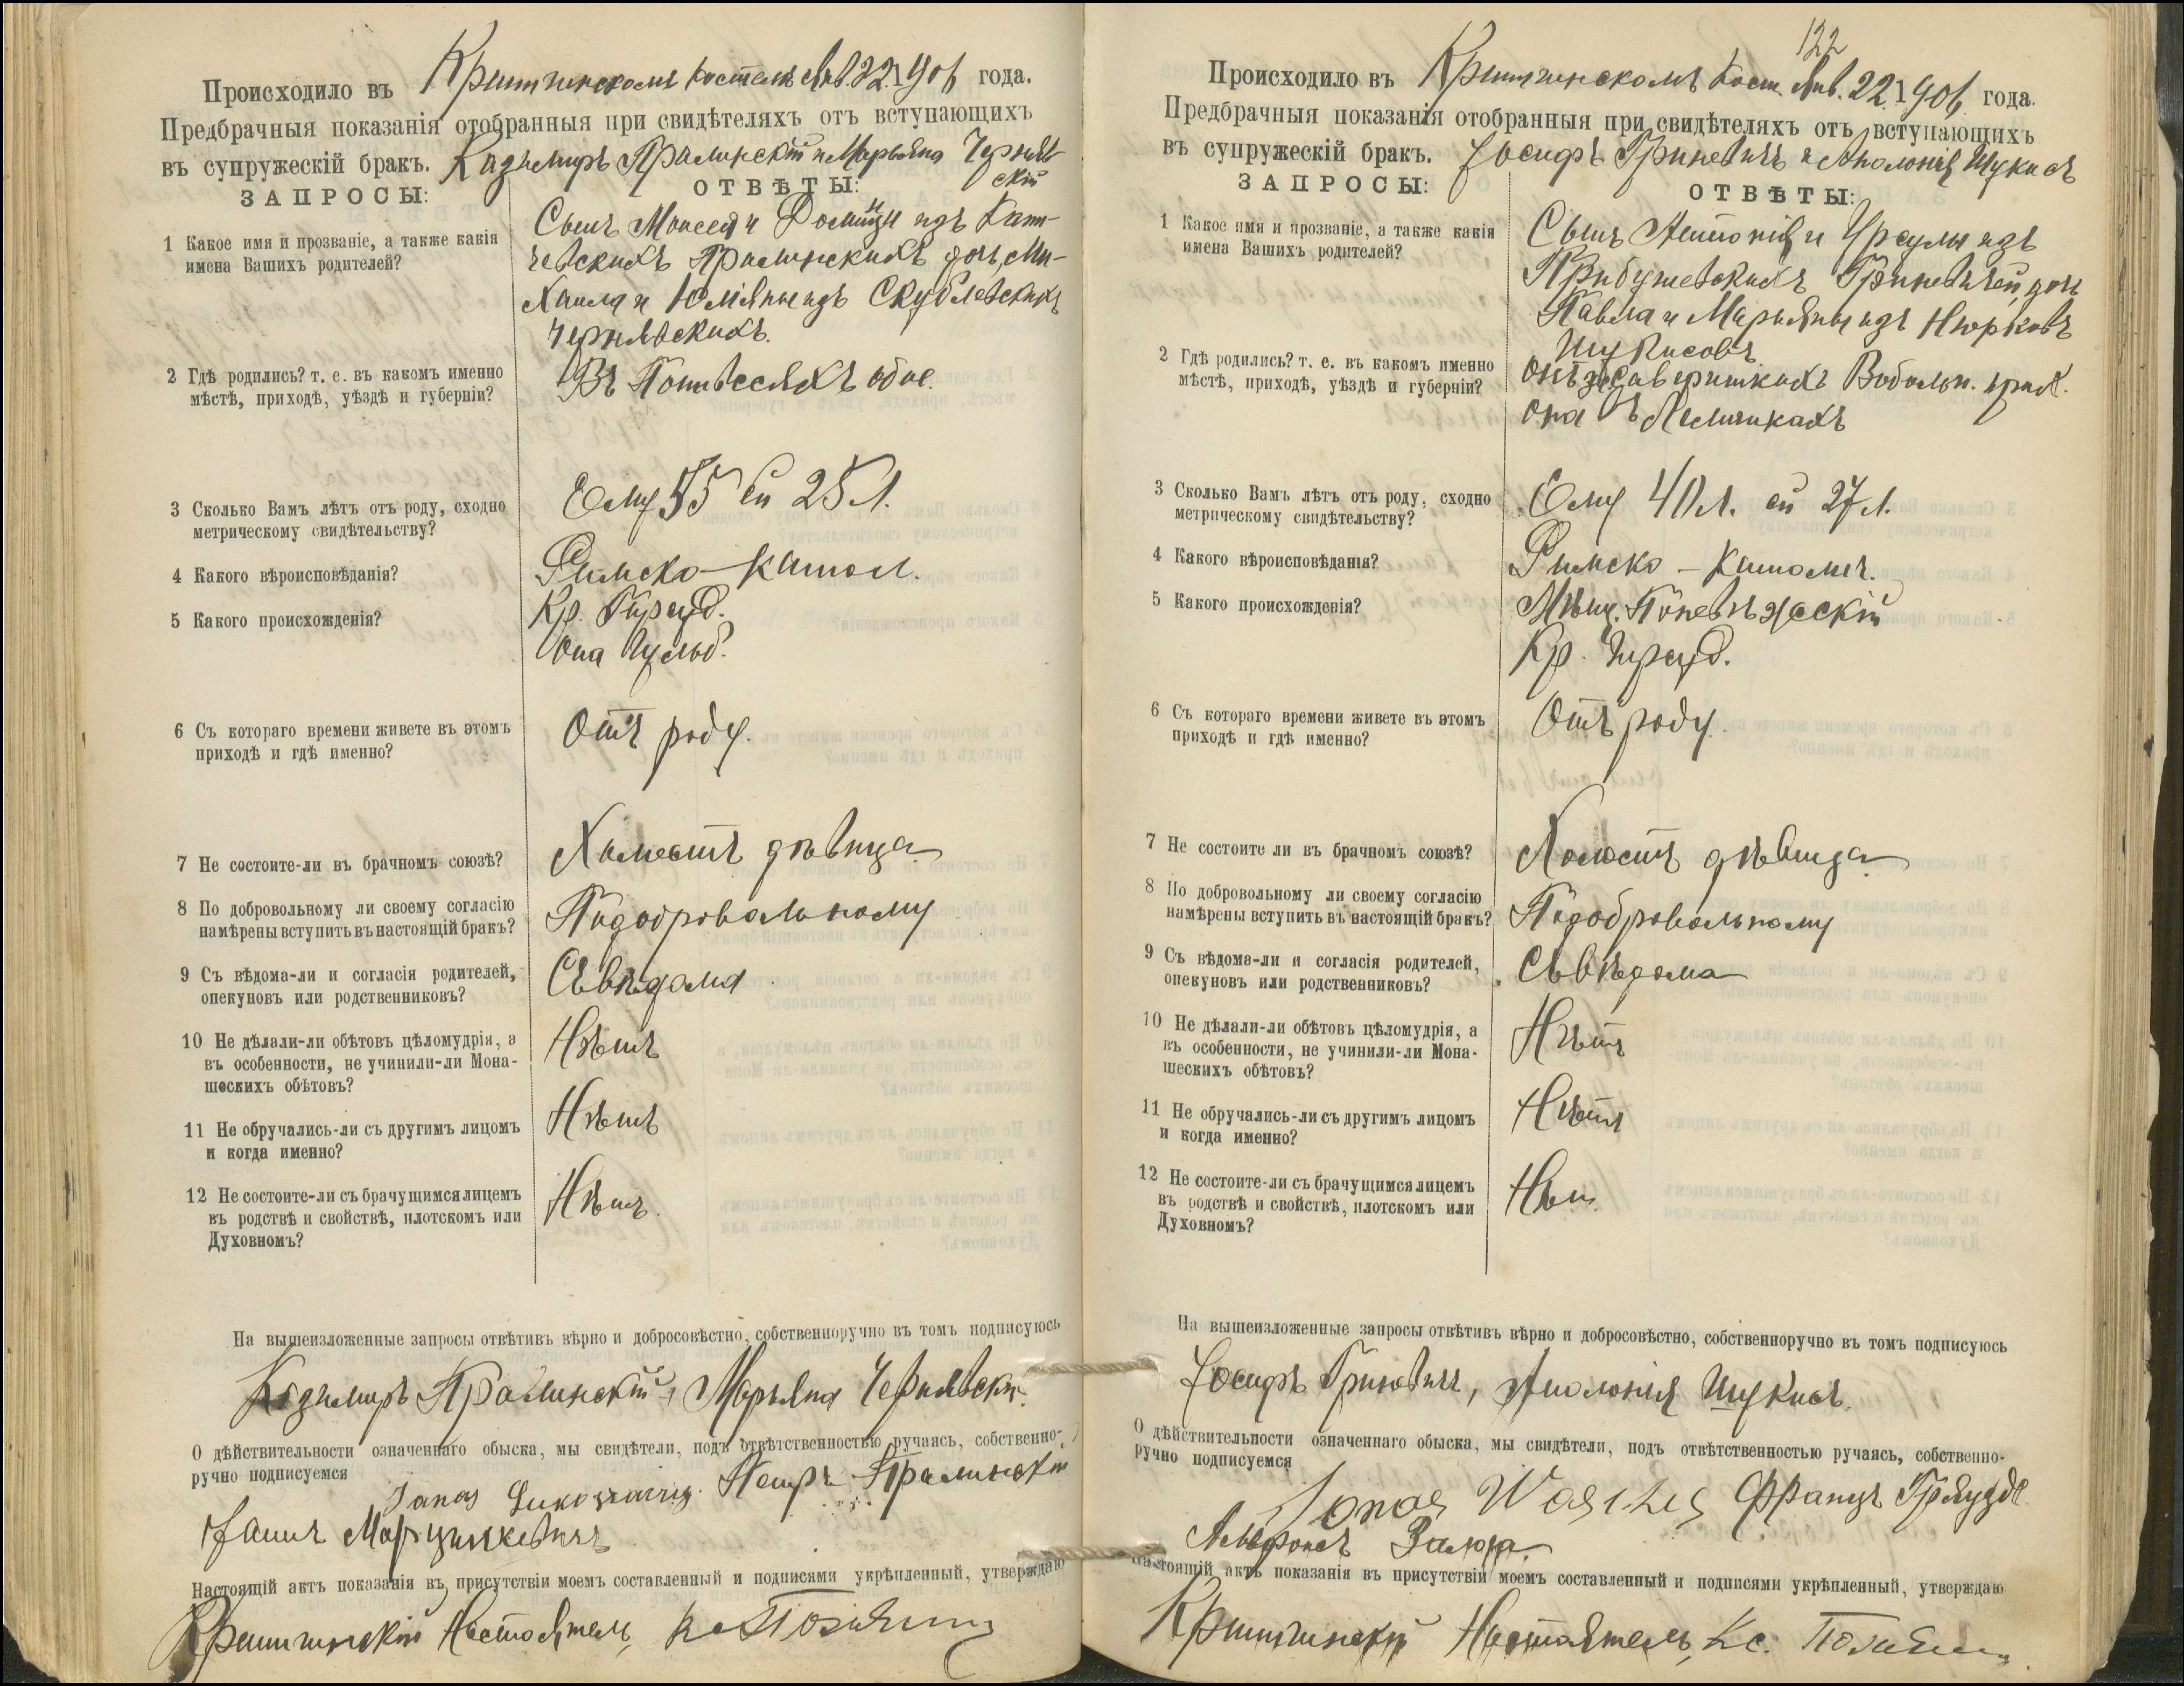 Происходило въ Криштинскомъ костелѣ Янв. 22. 1906 года.
Предбрачныя показанія отобранныя при свидѣтеляхъ отъ вступающихъ
въ супружескій бракъ. Казимиръ Прашинскій и Марьяна Чернев-
скій
ЗАПРОСЫ:
ОТВѢТЫ:
1 Какое имя и прозваніе, а также какія
имена Вашихъ родителей?
Сынъ Моисея и изъ
Прашинскихъ дочь Ми-
хаила и Юліяны изъ
2 Гдѣ родились? т. е. въ какомъ именно
мѣстѣ, приходѣ, уѣздѣ и губерніи?
Въ обое.
3 Сколько Вамъ лѣтъ отъ роду, сходно
метрическому свидѣтельству?
Ему ей 25 л.
4 Какого вѣроисповѣданія?
Римско-катол.
5 Какого происхожденія?
Кр.
Она
6 Съ котораго времени живете въ этомъ
приходѣ и гдѣ именно?
Отъ роду.
7 Не состоите-ли въ брачномъ союзѣ?
Холостъ дѣвица
8 По добровольному ли своему согласію
намѣрены вступить въ настоящій бракъ?
Подобровольному
9 Съ вѣдома-ли и согласія родителей,
опекуновъ или родственниковъ?
Съ вѣдома
10 Не дѣлали-ли обѣтовъ цѣломудрія, а
въ особенности, не учинили-ли Мона-
шескихъ обѣтовъ?
Нѣтъ
11 Не обручались-ли съ другимъ лицомъ
и когда именно?
Нѣтъ
12 Не состоите-ли съ брачущимся лицемъ
въ родствѣ и свойствѣ, плотскомъ или
Духовномъ?
Нѣтъ.
На вышеизложенные запросы отвѣтивъ вѣрно и добросовѣстно, собственноручно въ томъ подписуюсь
Казимиръ Прашинскій, Марьяна
О дѣйствительности означеннаго обыска, мы свидѣтели, подъ отвѣтственностью ручаясь, собственно-
ручно подписуемся
Janas Петръ Прашинскій
Янъ Марцинкевичъ
Настоящій актъ показанія въ присутствіи моемъ составленный и подписями укрѣпленный, утверждаю
Криштинскій Настоятель,
122
Происходило въ Криштинскомъ Кост. Янв. 22. 1906 года.
Предбрачныя показанія отобранныя при свидѣтеляхъ отъ вступающихъ
въ супружескій бракъ. Іосифъ Гриневичъ и Аполонія Шукисъ
ЗАПРОСЫ:
ОТВѢТЫ:
1 Какое имя и прозваніе, а также какія
имена Вашихъ родителей?
Сынъ Антонія и Урсулы изъ
Гриневичей, дочь
Павла и Марьяны изъ Нюрковъ
Шукисовъ
2 Гдѣ родились? т. е. въ какомъ именно
мѣстѣ, приходѣ, уѣздѣ и губерніи?
Онъ прих.
Она въ
3 Сколько Вамъ лѣтъ отъ роду, сходно
метрическому свидѣтельству?
Ему 40 л. ей 27 л.
4 Какого вѣроисповѣданія?
Римско-католич.
5 Какого происхожденія?
Мѣщ. Поневѣжскій
Кр.
6 Съ котораго времени живете въ этомъ
приходѣ и гдѣ именно?
Отъ роду
7 Не состоите ли въ брачномъ союзѣ?
Холостъ дѣвица
8 По добровольному ли своему согласію
намѣрены вступить въ настоящій бракъ?
Подобровольному
9 Съ вѣдома-ли и согласія родителей,
опекуновъ или родственниковъ?
Съ вѣдома
10 Не дѣлали-ли обѣтовъ цѣломудрія, а
въ особенности, не учинили-ли Мона-
шескихъ обѣтовъ?
Нѣтъ
11 Не обручались-ли съ другимъ лицомъ
и когда именно?
Нѣтъ
12 Не состоите-ли съ брачущимся лицемъ
въ родствѣ и свойствѣ, плотскомъ или
Духовномъ?
Нѣт.
На вышеизложенные запросы отвѣтивъ вѣрно и добросовѣстно, собственноручно въ томъ подписуюсь
Іосифъ Гриневичъ, Аполонія Шукисъ.
О дѣйствительности означеннаго обыска, мы свидѣтели, подъ отвѣтственностью ручаясь, собственно-
ручно подписуемся
Jonas Францъ
Альфонсъ
Настоящій актъ показанія въ присутствіи моемъ составленный и подписями укрѣпленный, утверждаю
Криштинскій Настоятель, Кс.